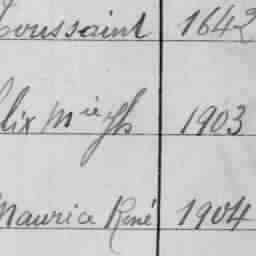 Toussaint 1642
lix Mie Jh 1903
Maurice René 1904